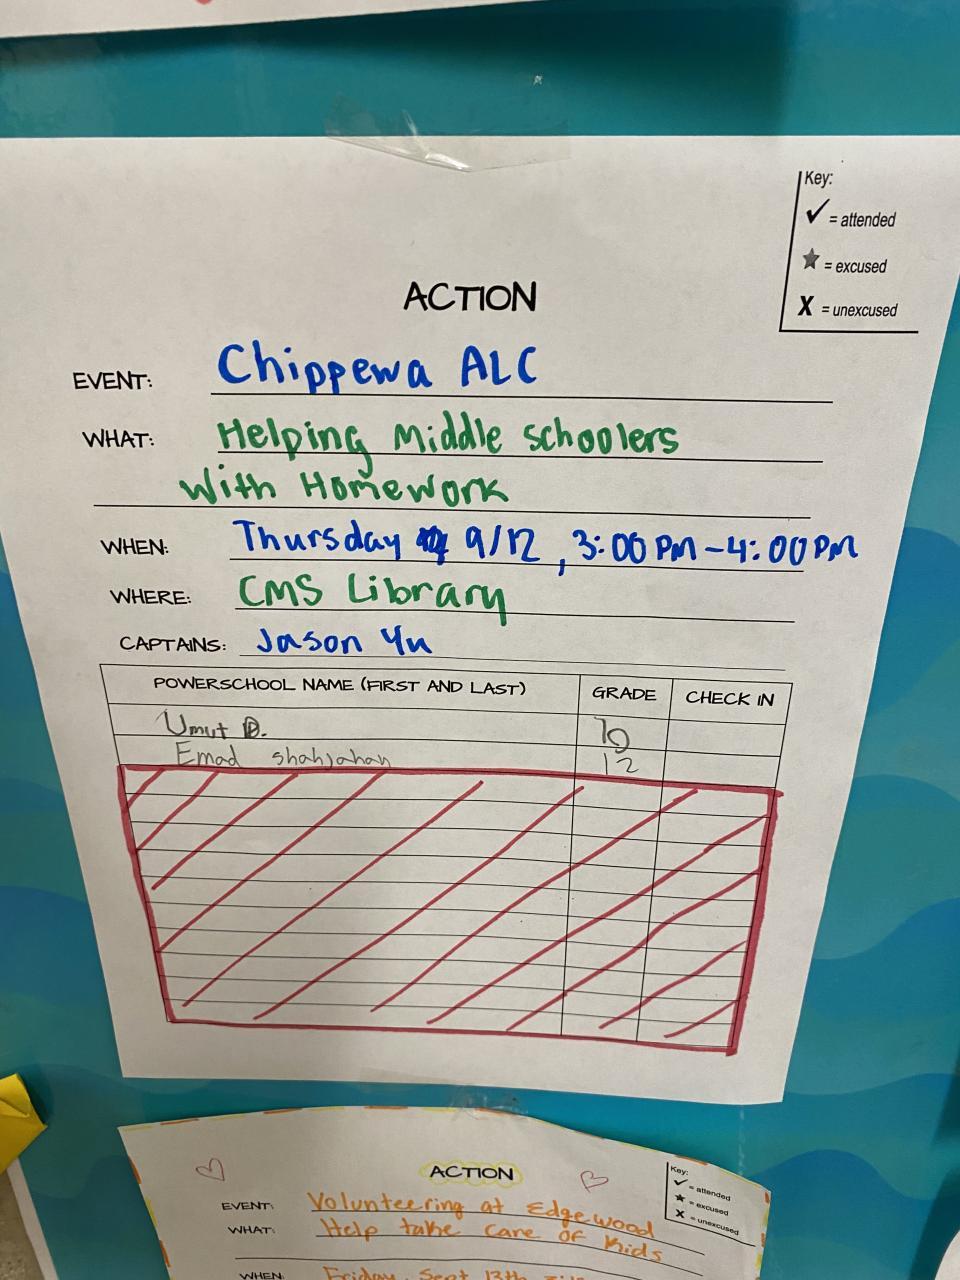 Key:
✓ = attended
★ = excused
X = unexcused
ACTION
EVENT: Chippewa ALC
WHAT: Helping Middle schoolers
With Homework
WHEN: Thursday 9/12, 3:00 PM - 4:00 PM
WHERE: CMS Library
CAPTAINS: Jason Yu
POWERSCHOOL NAME (FIRST AND LAST) GRADE CHECK IN
Umut D. 10
Emad shahjahan 12
ACTION
Key:
✓ = attended
★ = excused
X = unexcused
EVENT: Volunteering at Edgewood
WHAT: Help take care of kids
WHEN: Friday, Sept 13th